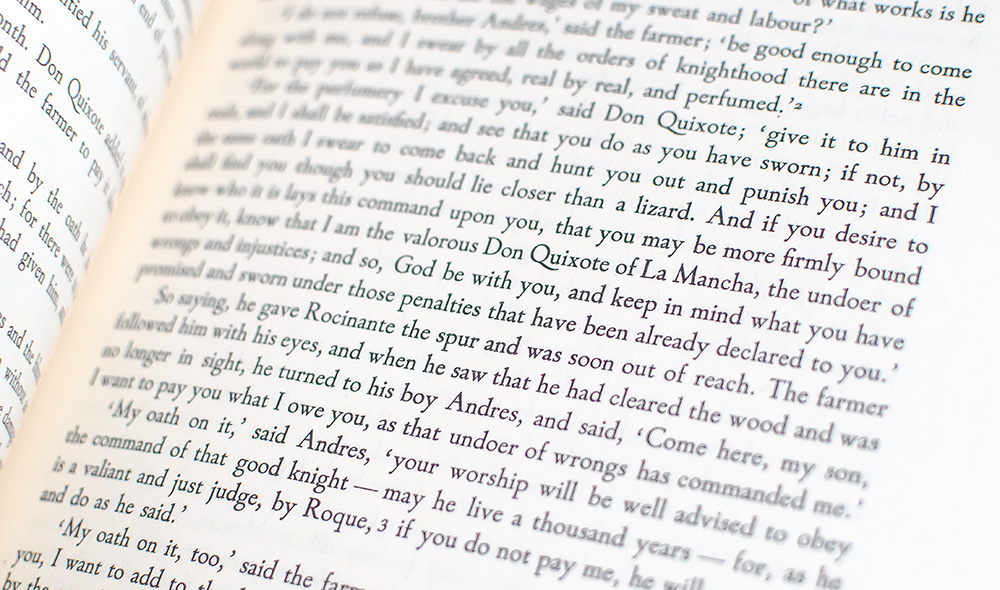 him.
month. Don Quixote
the farmer to pay
and by the oath
for there were
had given him
and the
without
titled his servant,
of what works is he
wages of my sweat and labour?'
'I do not refuse, brother Andres,' said the farmer; 'be good enough to come
along with me, and I swear by all the orders of knighthood there are in the
world to pay you as I have agreed, real by real, and perfumed.'2
'For the perfumery I excuse you,' said Don Quixote; 'give it to him in
reals, and I shall be satisfied; and see that you do as you have sworn; if not, by
the same oath I swear to come back and hunt you out and punish you; and I
shall find you though you should lie closer than a lizard. And if you desire to
know who it is lays this command upon you, that you may be more firmly bound
to obey it, know that I am the valorous Don Quixote of La Mancha, the undoer of
wrongs and injustices; and so, God be with you, and keep in mind what you have
promised and sworn under those penalties that have been already declared to you.'
So saying, he gave Rocinante the spur and was soon out of reach. The farmer
followed him with his eyes, and when he saw that he had cleared the wood and was
no longer in sight, he turned to his boy Andres, and said, 'Come here, my son,
I want to pay you what I owe you, as that undoer of wrongs has commanded me.'
'My oath on it,' said Andres, 'your worship will be well advised to obey
the command of that good knight — may he live a thousand years — for, as he
is a valiant and just judge, by Roque,3 if you do not pay me, he will
and do as he said.'
'My oath on it, too,' said the
you, I want to add to
by the